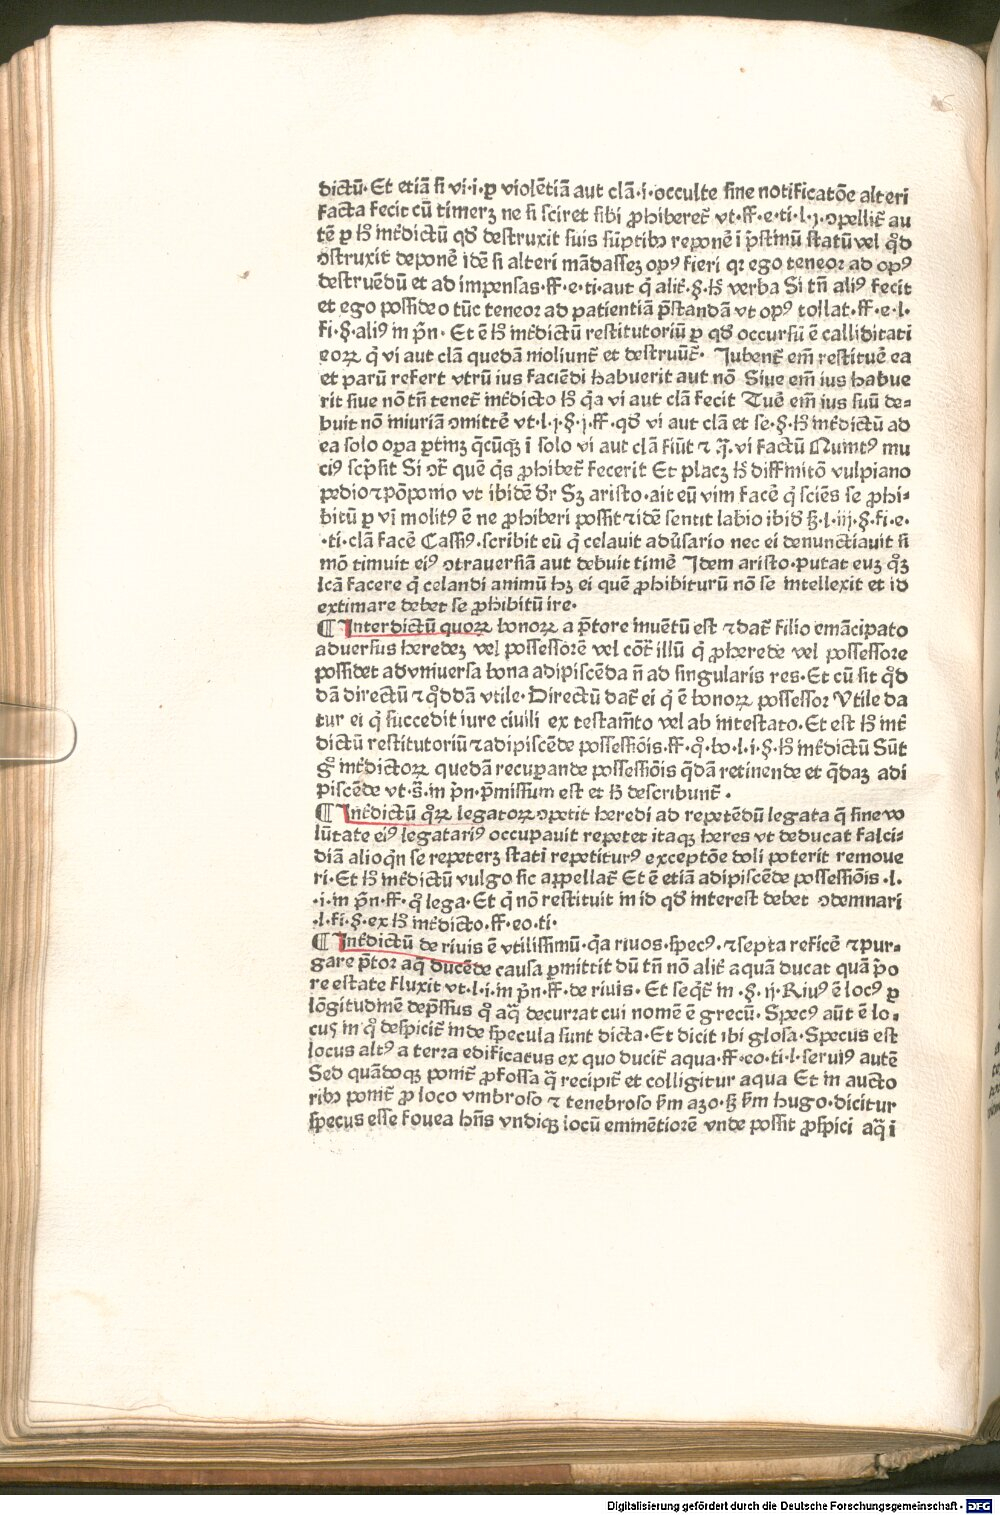 dictū· Et etiā si vi·i·p violētiā aut clā·i·occulte sine notificatōe alteri
facta fecit cū timerꝫ ne si sciret sibi ꝓhiberet᷑ vt·ff·e·ti·l·j·ꝯpellit᷑ au
tē ꝑ hͦ int᷑dictū qđ destruxit suis sūptibꝫ reponē i pr̄stinū statū vel qͦđ
ꝯstruxit deponē idē si alteri mādassēꝫ opꝰ fieri qꝛ ego teneoꝛ ad opꝰ
destruēdū et ad impensas·ff·e·ti·aut q̄ alit᷑·§·hͦ verba Si tn̄ aliꝰ fecit
et ego possideo tūc teneoꝛ ad patientiā p̄standā vt opꝰ tollat·ff·e·l·
fi·§·aliꝰ in pn̄· Et ē hͦ int᷑dictū restitutoriū ꝑ qđ occursū ē calliditati
eoꝝ q̇ vi aut clā quedā moliunt᷑ et destruūt᷑· Jubent᷑ em̄ restituē ea
et parū refert vtrū ius faciēdi habuerit aut nō Siue em̄ ius habue
rit siue nō tn̄ tenet᷑ int᷑dicto hͦ q̇a vi aut clā fecit Tuē em̄ ius suū de-
buit nō iniuriā ꝯmittē vt·l·j·§·j·ff·qđ vi aut clā et se·§·hͦ int᷑dictū ad
ea solo oꝑa ꝑtinꝫ q̄cūqꝫ ī solo vi aut clā fiūt ⁊ q̄·vi factū Numtꝰ mu
ciꝰ scp̄sit Si ꝯt᷑ quē q̇s ꝓhibet᷑ fecerit Et placꝫ hͦ diffinitō vulpiano
pedio ⁊ pōponio vt ibidē dr̄ Sꝫ aristo·ait eū vim facē q̇ sciēs se ꝓhi-
bitū ꝑ vī molitꝰ ē ne ꝓhiberi possit ⁊ idē sentit labio ibiđ ꝫ·l·iij·§·fi·e·
·ti·clā facē Cassiꝰ·scribit eū q̇ celauit adūsario nec ei denunctiauit si
mō timuit eiꝰ ꝯtrauersiā aut debuit timē Idem aristo·putat euꝫ qͦꝫ
lcā facere q̇ celandi animū hꝫ ei quē ꝓhibiturū nō se intellexit et id
extimare debet se ꝓhibitū ire·
¶ Interdictū quoꝝ bonoꝝ a p̄tore inuētū est ⁊ dat᷑ filio emācipato
aduersus heredeꝫ vel possessorē vel cōt᷑ illū q̇ ꝓ herede vel possessore
possidet ad vniuersa bona adipiscēda n̄ ad singularis res·Et cū sit qͦđ
dā directū ⁊ qͦddā vtile·Directū dat᷑ ei q̇ ē bonoꝝ possessor Vtile da
tur ei q̇ succedit iure ciuili ex testam̄to vel ab intestato·Et est hͦ int᷑
dictū restitutoriū ⁊ adipiscēde possessiōis·ff·qͦ·bo·l·i·§·hͦ int᷑dictū Sūt
gͦ int᷑dictoꝝ quedā recuꝑande possessiōis q̄dā retinende et q̄daꝫ adi
piscēde vt·s̄·in pn̄·p̄missum est et hͦ describunt᷑·
¶ Int᷑dictū qͦꝝ legatoꝝ ꝯpetit heredi ad repetēdū legata q̄ sine vo
lūtate eiꝰ legatariꝰ occupauit repetet itaqꝫ heres vt deducat falci-
diā alioqͥn se repeterꝫ stati repetiturꝰ exceptōe doli poterit remoue
ri·Et hͦ int᷑dictū vulgo sic appellat᷑ Et ē etiā adipiscēde possessiōis·l·
·i·in pn̄·ff·qͦ lega·Et q̇ nō restituit in id qđ interest debet ꝯdemnari
·l·fi·§·ex hͦ int᷑dicto·ff·eo·ti·
¶ Int᷑dictū de riuis ē vtilissimū·q̇a riuos·specꝰ·⁊ septa reficē ⁊ pur-
gare p̄tor aq̄ ducēde causa ꝑmittit dū tn̄ nō alit᷑ aquā ducat quā p̄o
re estate fluxit vt·l·i·in pn̄·ff·de riuis· Et seqͥt᷑ in·§·ij·Riuꝰ ē locꝰ ꝑ
lōgitudinē dep̄ssus qͦ aq̄ decurrat cui nomē ē grecū·Specꝰ aūt ē lo-
cuꝰ in qͦ despicit᷑ inde specula sunt dicta·Et dicit ibi glosa·Specus est
locus altꝰ a terra edificatus ex quo ducit᷑ aqua·ff·eo·ti·l·seruiꝰ autē
Sed quādoqꝫ ponit᷑ ꝓ fossa q̄ recipit᷑ et colligitur aqua Et in aucto
ribꝫ ponit᷑ ꝓ loco vmbroso ⁊ tenebroso ẜm aꝫo·ꝫ ẜm hugo·dicitur
specus esse fouea hn̄s vndiqꝫ locū eminētiorē vnde possit ꝓspici aq̄ i
Digitalisierung gefördert durch die Deutsche Forschungsgemeinschaft - DFG